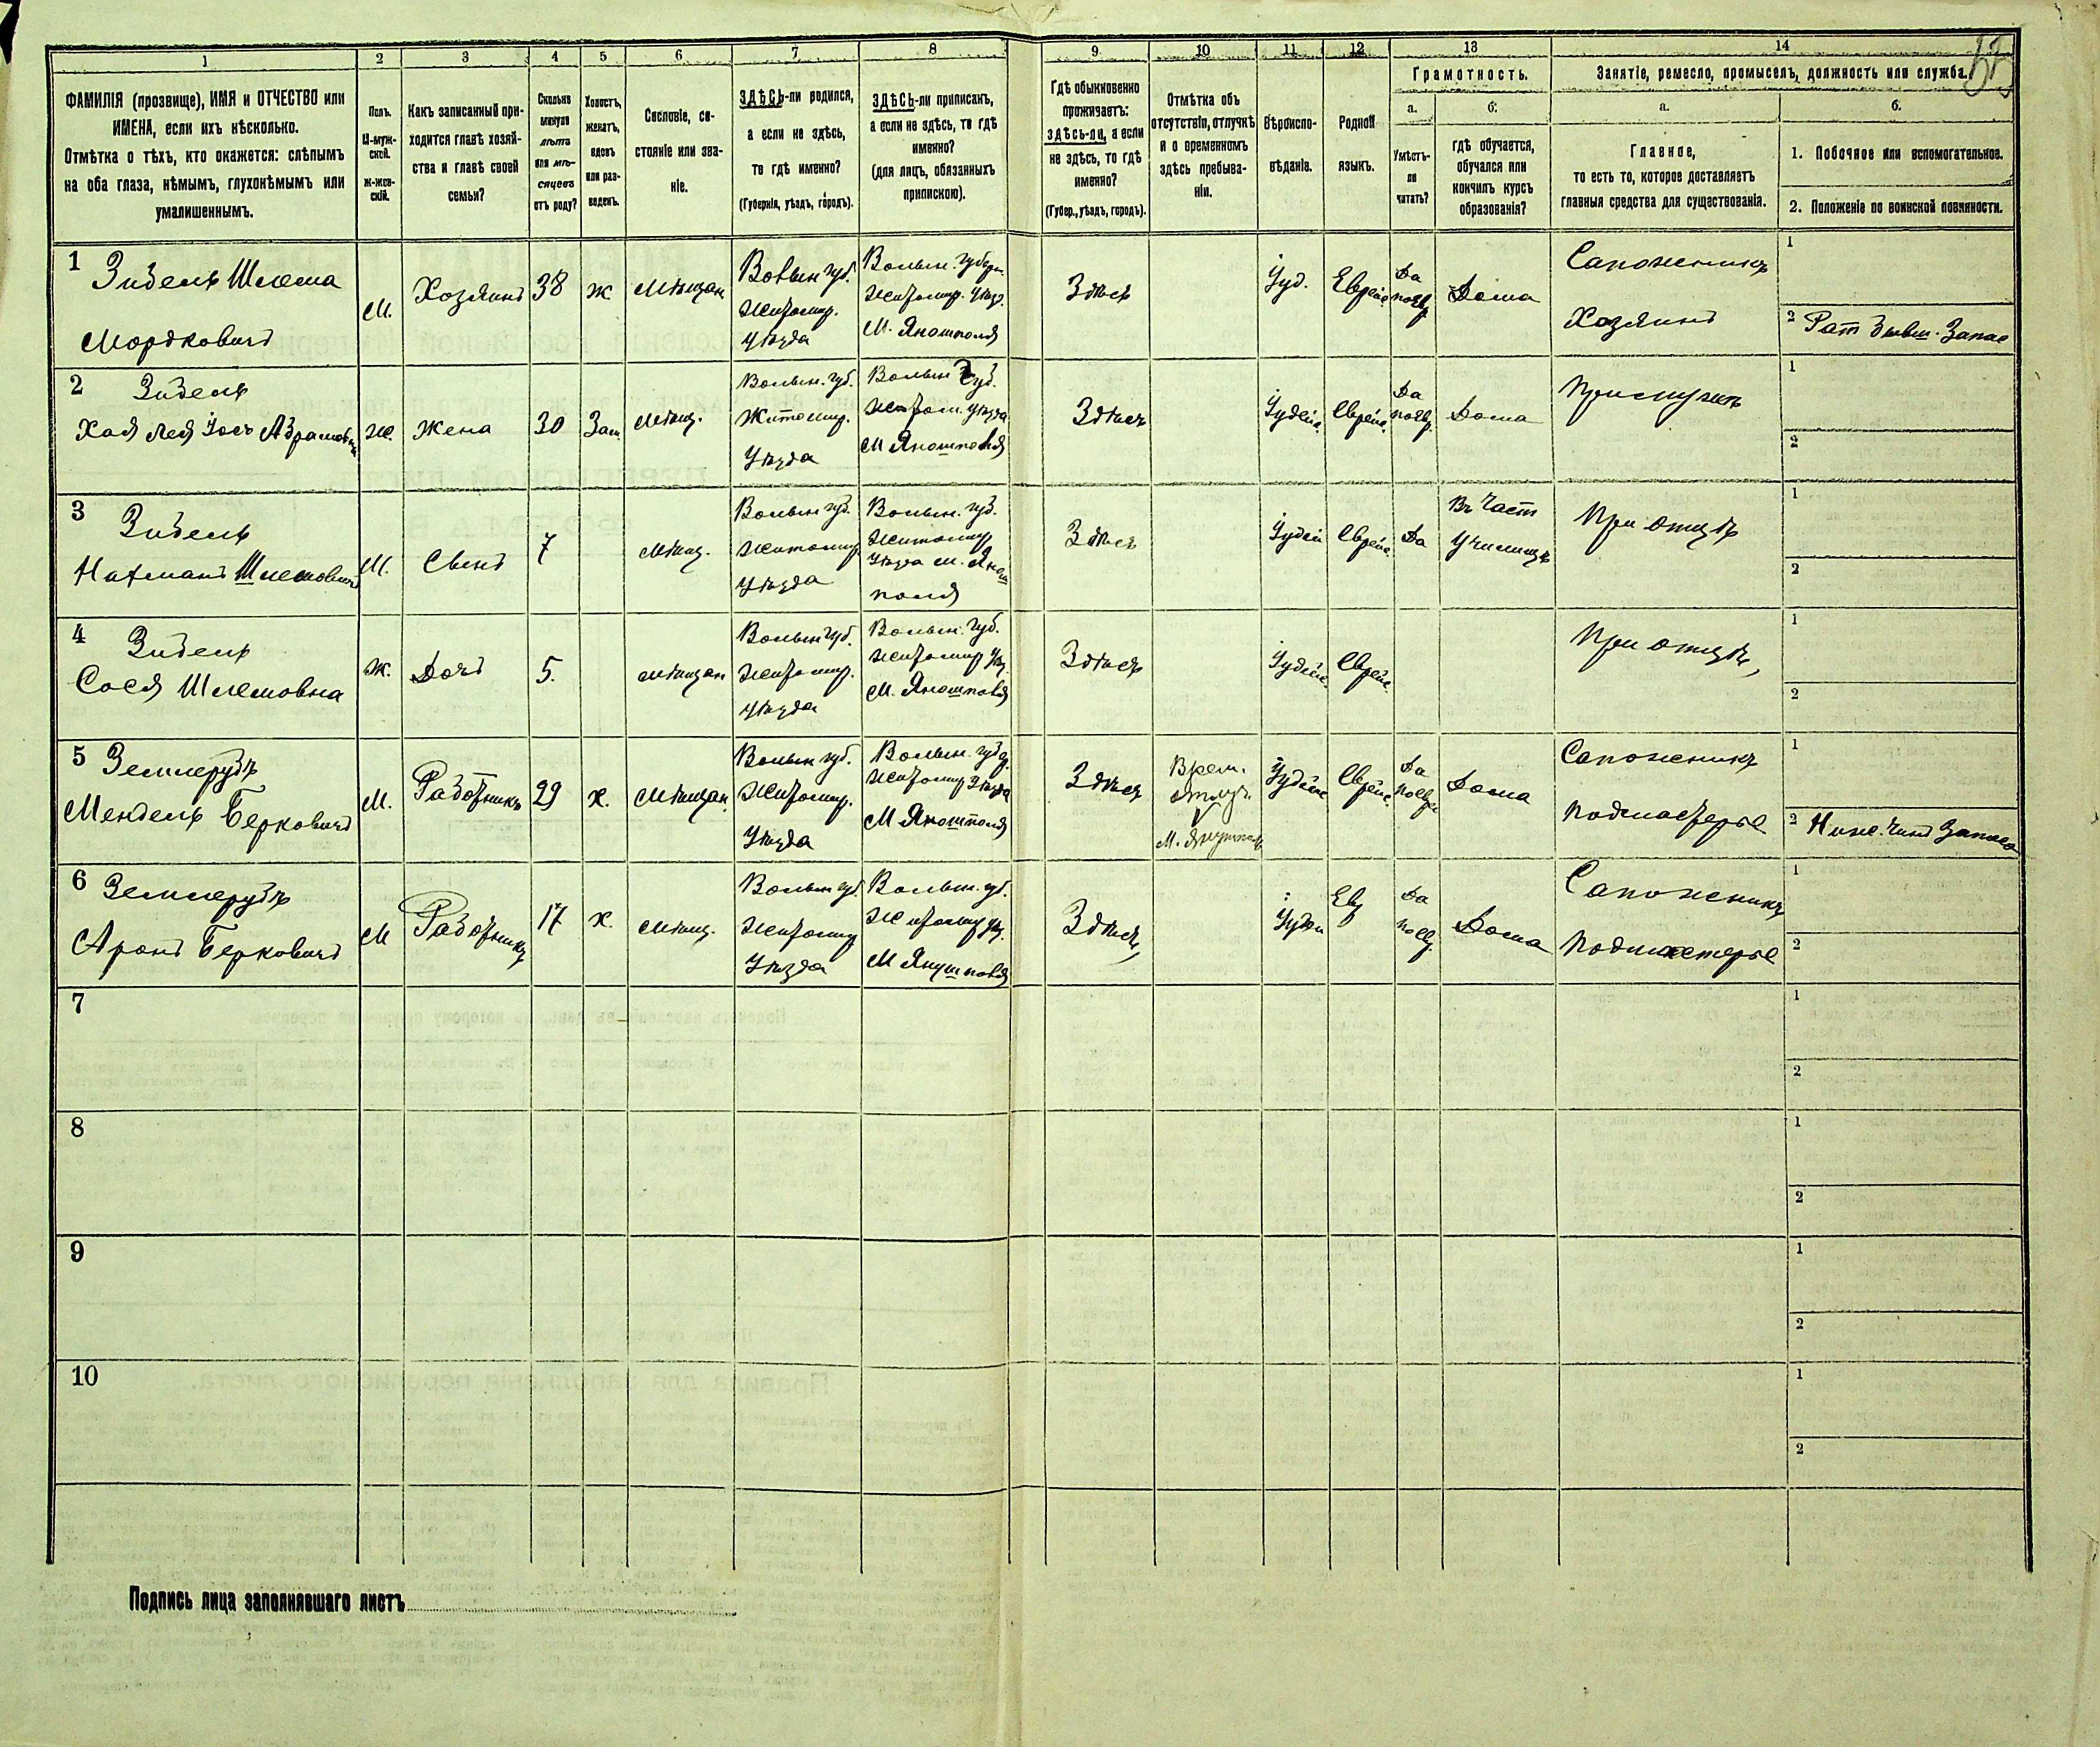 1 2 3 4 5 6 7 8 9 10 11 12 13 14
ФАМИЛІЯ (прозвище), ИМЯ и ОТЧЕСТВО или
ИМЕНА, если ихъ нѣсколько.
Отмѣтка о тѣхъ, кто окажется: слѣпымъ
на оба глаза, нѣмымъ, глухонѣмымъ или
умалишеннымъ.
Полъ.
М-муж-
ской.
Ж-жен-
скій.
Какъ записанный при-
ходится главѣ хозяй-
ства и главѣ своей
семьи?
Сколько
минуло
лѣтъ
или мѣ-
сяцевъ
отъ роду?
Холостъ,
женатъ,
вдовъ
или раз-
веденъ.
Сословіе, со-
стояніе или зва-
ніе.
ЗДѢСЬ-ли родился,
а если не здѣсь,
то гдѣ именно?
(Губернія, уѣздъ, городъ).
ЗДѢСЬ-ли приписанъ,
а если не здѣсь, то гдѣ
именно?
(для лицъ, обязанныхъ
припискою).
Гдѣ обыкновенно
проживаетъ:
здѣсь-ли, а если
не здѣсь, то гдѣ
именно?
(Губер., уѣздъ, городъ).
Отмѣтка объ
отсутствіи, отлучкѣ
и о временномъ
здѣсь пребыва-
ніи.
Вѣроиспо-
вѣданіе.
Родной
языкъ.
Грамотность.
а.
Умѣетъ-
ли
читать?
б.
гдѣ обучается,
обучался или
кончилъ курсъ
образованія?
Занятіе, ремесло, промыселъ, должность или служба.
а.
Главное,
то есть то, которое доставляетъ
главныя средства для существованія.
б.
1. Побочное или вспомогательное.
2. Положеніе по воинской повинности.
1
Зидель Шлема
Мордковичъ
М.
Хозяинъ
38
Ж.
Мѣщан
Волын губ.
Житомир.
Уѣзда
Волын. Губерн.
Житомир. Уѣзд.
М. Яношполя
Здѣсь
Іуд.
Еврейс.
Да
по Евр
Дома
Сапожникъ
Хозяинъ
1
2 Рат бывш. Запас
2
Зидель
Хая Лея Абрамовн
Ж.
Жена
30
Зам
Мѣщ.
Волын. губ.
Житомир.
Уѣзда
Волын Губ.
Житом. Уѣзда
М Яношполя
Здѣсь
Іудейс.
Еврейс.
Да
по Евр
Дома
При мужѣ
1
2
3
Зидель
Нахманъ Шлемовичъ
М.
Сынъ
7
Мѣщ.
Волын губ.
Житомир
Уѣзда
Волын. губ.
Житомир
Уѣзда М. Янош
поля
Здѣсь
Іудей
Еврейс.
Да
Въ Част
Училищѣ
При отцѣ
1
2
4
Зидель
Сося Шлемовна
Ж.
Дочь
5.
Мѣщан
Волын губ.
Житомир.
Уѣзда
Волын. Губ.
Житомир Уѣз.
М. Яношполя
Здѣсь
Іудейс.
Еврейс.
При отцѣ
1
2
5
Землерубъ
Мендель Берковичъ
М.
Работникъ
29
х.
Мѣщан.
Волын губ.
Житомир.
Уѣзда
Волын. губ.
Житомир Уѣзда
М Яношполя
Здѣсь
Врем.
отлуч.
Іудейс
Еврейс.
Да
по Евре
Дома
Сапожникъ
Подмастерье
1
2 Ниж. Чинъ Запаса
6
Землерубъ
Аронъ Берковичъ
М
Работникъ
17
х.
Мѣщ.
Волын губ.
Житомир
Уѣзда
Волын. губ.
Житомир Уѣз.
М Янушполя
Здѣсь
Іудей
Евр
Да
по Евр.
Дома
Сапожникъ
Подмастерье
1
2
7
1
2
8
1
2
9
1
2
10
1
2
Подпись лица заполнявшаго листъ